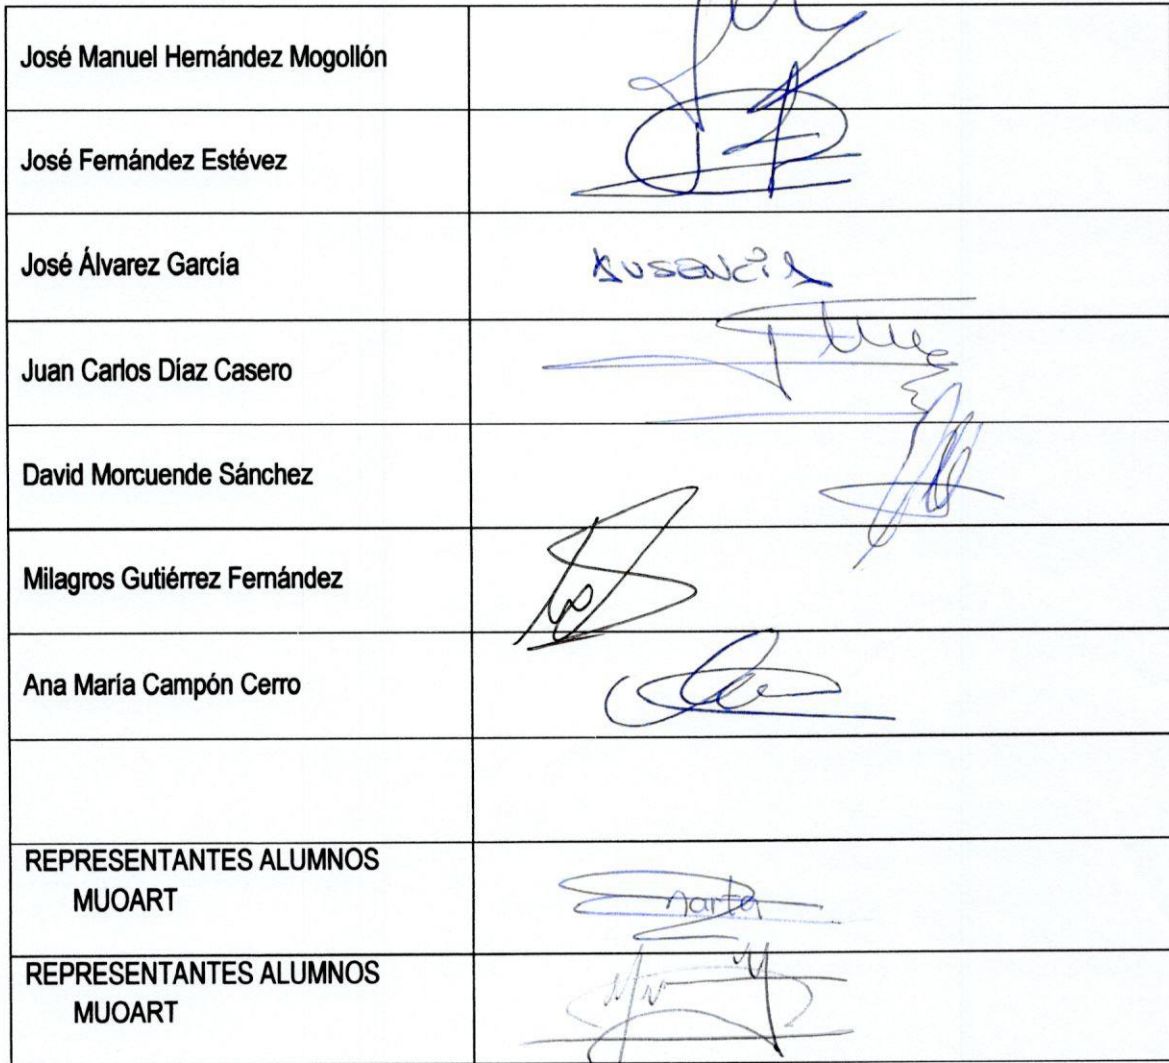 José Manuel Hernández Mogollón
José Fernández Estévez
José Álvarez García
AUSENCIA
Juan Carlos Díaz Casero
David Morcuende Sánchez
Milagros Gutiérrez Fernández
Ana María Campón Cerro
REPRESENTANTES ALUMNOS
MUOART
Marta
REPRESENTANTES ALUMNOS
MUOART